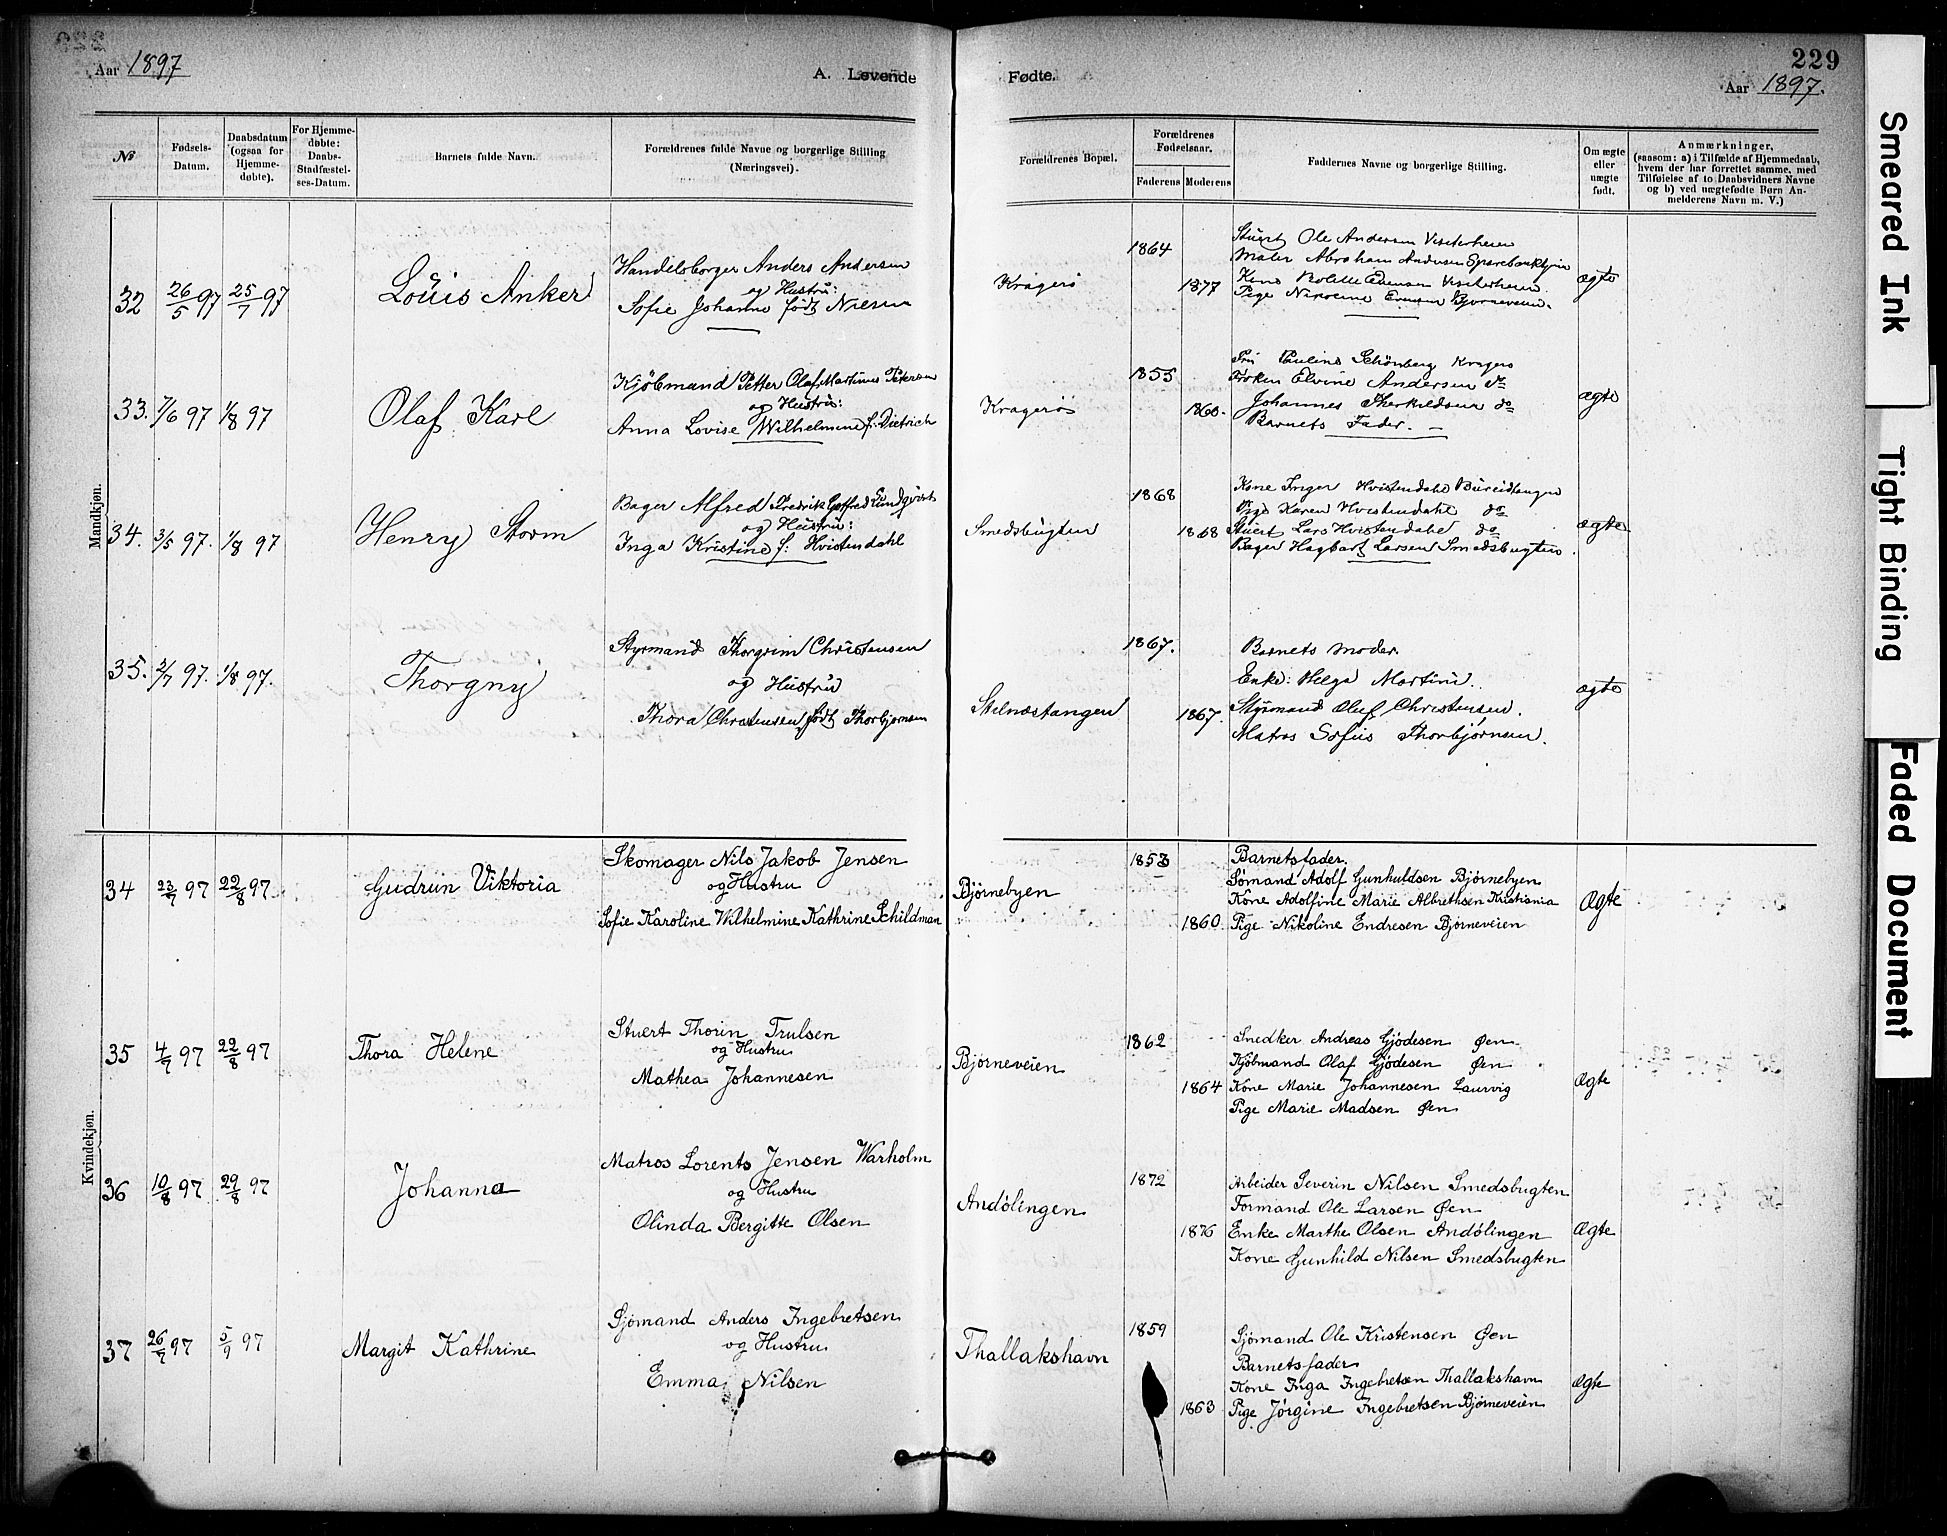 229
Aar 1897
A. Levende Fødte.
Aar 1897.
№
Fødsels-Datum.
Daabsdatum (ogsaa for Hjemme-døbte).
For Hjemme-døbte: Daabs-Stadfæstel-ses-Datum.
Barnets fulde Navn.
Forældrenes fulde Navne og borgerlige Stilling (Næringsvei).
Forældrenes Bopæl.
Forældrenes Fødselsaar.
Faderens
Moderens
Faddernes Navne og borgerlige Stilling.
Om ægte eller uægte født.
Anmærkninger,
(saasom: a) i Tilfælde af Hjemmedaab,
hvem der har forrettet samme, med
Tilføielse af to Daabsvidners Navne
og b) ved uægtefødte Børn An-
melderens Navn m. V.)
Mandkjøn.
32 26/5 97 25/7 97 Louis Anker
Handelsborger Anders Andersen
og Hustru:
Sofie Johanne født
Kragerø
1864
1877
Stuert Ole Andersen
Maler Abraham Andersen
Kone
Pige Bjørneveien.
ægte
33. 7/6 97 1/8 97 Olaf Karl
Kjøbmand Petter Olaf Martinus Petersen
og Hustru:
Anna Lovise Wilhelmine f. Dietrich
Kragerø
1855
1860.
Fru Pauline Schönberg Kragerø
Frøken Elvine Andersen do
Johannes Therkildsen do
Barnets Fader.
ægte
34. 3/5 97. 1/8 97 Henry Storm
Bager Alfred Fredrik Gotfred Lundqvist
og Hustru:
Inga Kristine f: Hvistendahl
Smedsbugten
1868
1868
Kone Inger Hvistendahl
Pige Karen Hvistendahl do
Stuert Lars Hvistendahl do
Bager Hagbart Larsen Smedsbugten.
ægte
35. 2/7 97. 1/8 97. Thorgny
Styrmand Thorgrim Christensen
og Hustru
Thora Christensen født Thorbjørnsen
Stelnæstangen
1867.
1867.
Barnets moder.
Enke: Helga Martini.
Styrmand Oluf Christensen.
Matros Sofus Thorbjørnsen.
ægte
Kvindekjøn.
34 23/7 97 22/8 97 Gudrun Viktoria
Skomager Nils Jakob Jensen
og Hustru
Sofie Karoline Wilhelmine Kathrine Schildman
Bjørnebyen
1853
1860
Barnets fader.
Sømand Adolf Gunhuldsen Bjørnebyen
Kone Adolfine Marie Albrethsen Kristiania
Pige Nikoline Endresen Bjørneveien
Ægte
35 4/7 97 22/8 97 Thora Helene
Stuert Thorin Trulsen
og Hustru
Mathea Johannesen
Bjørneveien
1862
1864
Snedker Andreas Gjødesen Øen
Kjøbmand Olaf Gjødesen Øen
Kone Marie Johannesen Laurvig
Pige Marie Madsen Øen
Ægte
36 10/8 97 29/8 97 Johanna
Matros Lorents Jensen Warholm
og Hustru
Olinda Bergitte Olsen
Andølingen
1872
1876
Arbeider Severin Nilsen Smedsbugten
Formand Ole Larsen Øen
Enke Marthe Olsen Andølingen
Kone Gunhild Nilsen Smedsbugten
Ægte
37 26/7 97 5/9 97 Margit Kathrine
Sjømand Anders Ingebretsen
og Hustru
Emma Nilsen
Thallakshavn
1859
1863
Sjømand Ole Kristensen Øen
Barnets fader
Kone Inga Ingebretsen Thallakshavn
Pige Jørgine Ingebretsen Bjørneveien
Ægte
Smeared Ink
Tight Binding
Faded Document